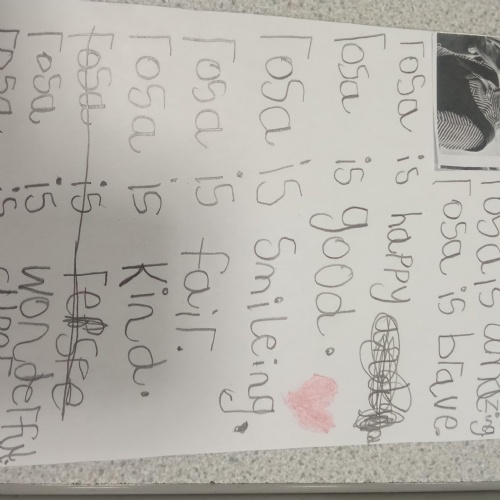 rosa is amazing
rosa is brave.
rosa is happy
rosa is good.
rosa is smileing.
rosa is fair.
rosa is kind.
rosa is
rosa is wonderful.
rosa is